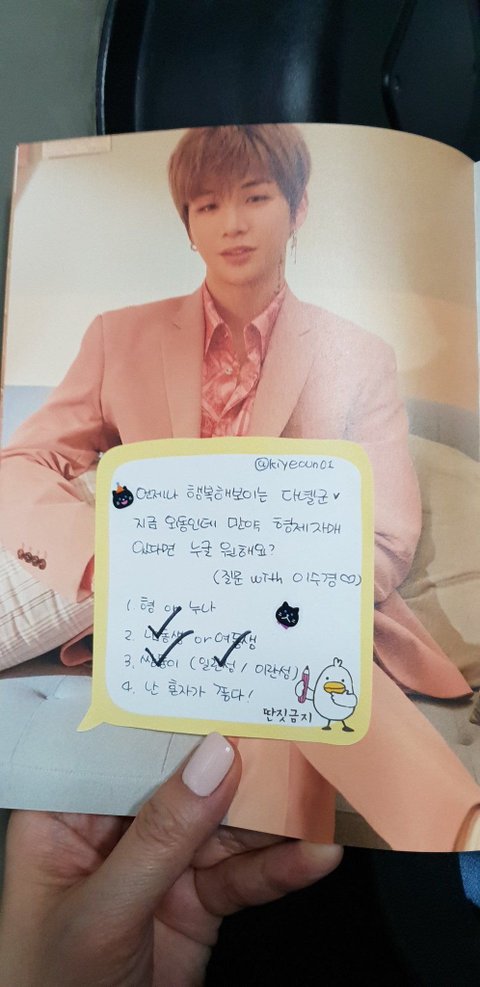 @kiyeoun01
언제나 행복해보이는 다녤군♥
지금 외동인데 만약 형제자매
있다면 누굴 원해요?
(질문 with 이수경♡)
1. 형 or 누나
2. 남동생 or 여동생
3. 쌍둥이 (일란성 / 이란성)
4. 난 혼자가 좋다!
딴짓금지